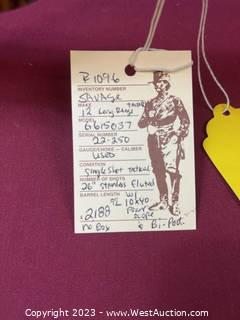 R1096
INVENTORY NUMBER
SAVAGE
MAKE
12 Long Range
MODEL
6615037
SERIAL NUMBER
22-250
GAUGE/CHOKE — CALIBER
USED
CONDITION
Single Shot Tactical
NUMBER OF SHOTS
26" Stainless Fluted
BARREL LENGTH W/
10x40
$2188 Scope
no Box & Bi-Pod
Copyright 2023 - WestAuction.com